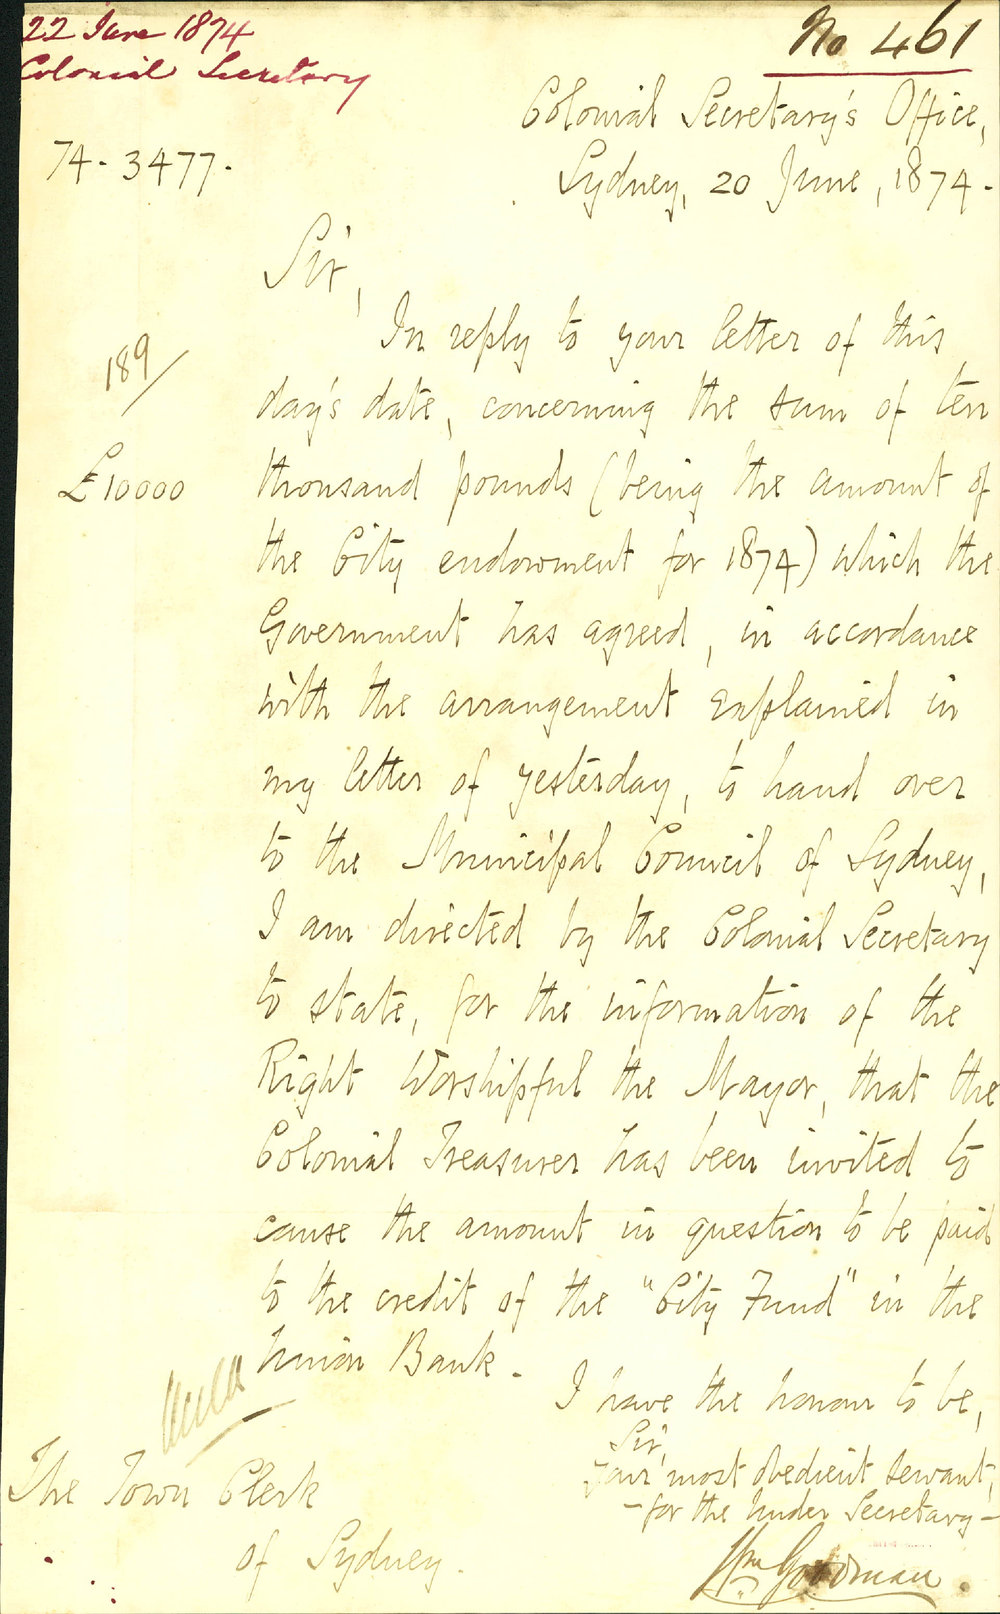 22 June 1874
Colonial Secretary
No 461
Colonial Secretary's Office,
Sydney, 20 June, 1874.
74-3477.
Sir,
In reply to your letter of this
189/
day's date, concerning the sum of ten
£10000
thousand pounds (being the amount of
the City endowment for 1874) which the
Government has agreed, in accordance
with the arrangement explained in
my letter of yesterday, to hand over
to the Municipal Council of Sydney,
I am directed by the Colonial Secretary
to state, for the information of the
Right Worshipful the Mayor, that the
Colonial Treasurer has been invited to
cause the amount in question to be paid
to the credit of the "City Fund" in the
Union Bank.
I have the honour to be,
Sir,
Your most obedient servant,
- for the Under Secretary -
Wm Goodman
The Town Clerk
of Sydney.